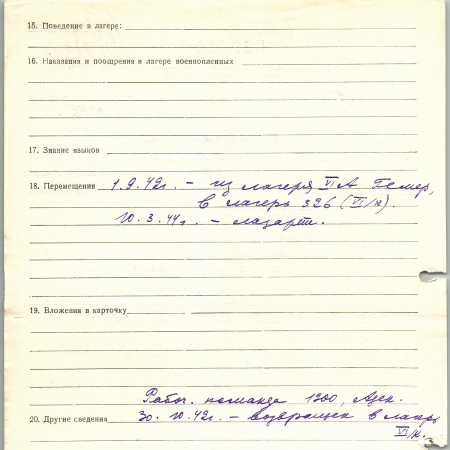 15. Поведение в лагере:
16. Наказания и поощрения в лагере военнопленных
17. Знание языков
18. Перемещения 1.9.42г. – из лагеря VI А Гемер,
в лагерь 326 (VI/к).
10.3.44г. – лазарет.
19. Вложения в карточку
Рабоч. команда 1300, Ахен.
20. Другие сведения 30.10.42г. – возвращен в лагерь
VI/к.